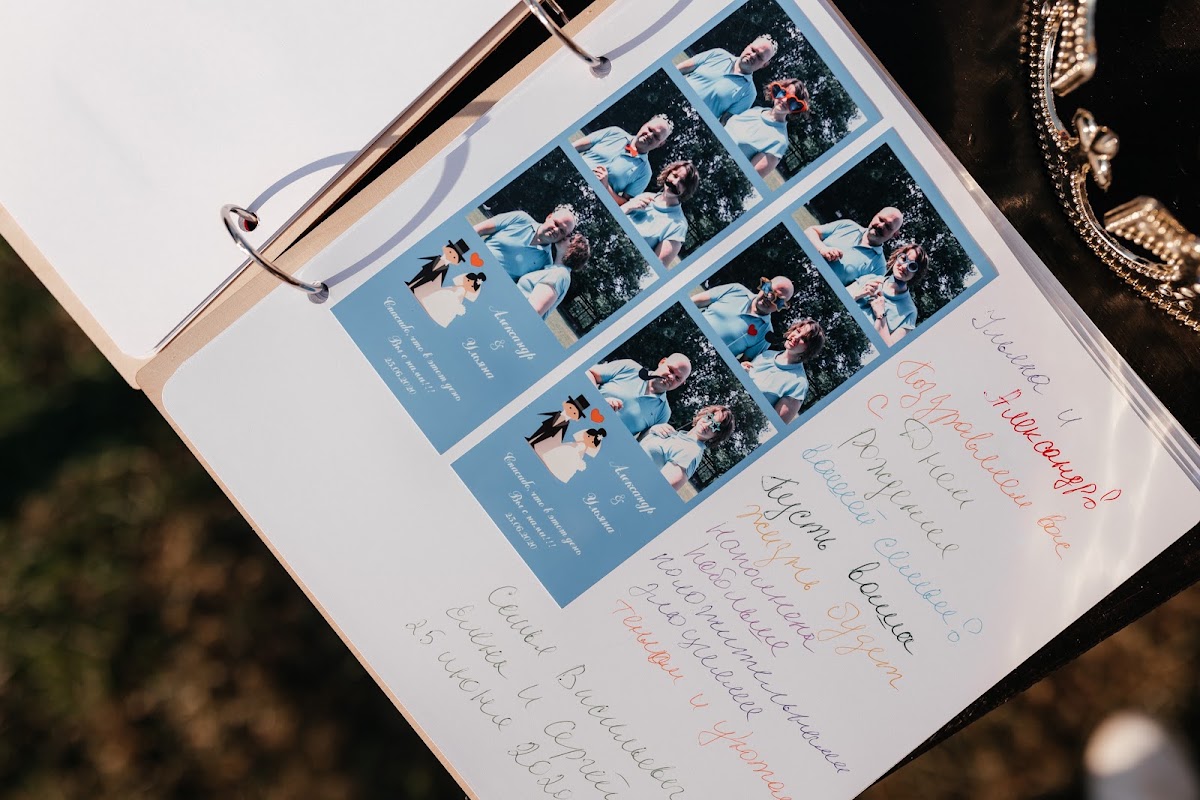 Александр
&
Ульяна
Спасибо, что в этот день
Вы с нами!!!
25.06.2020
Александр
&
Ульяна
Спасибо, что в этот день
Вы с нами!!!
25.06.2020
Ульяна и
Александр!
Поздравляем вас
с Днем
Рождения
вашей семьи!
Пусть ваша
жизнь будет
наполнена
побольше
положительными
эмоциями
Теплом и уютом
Семья Василевич
Елена и Сергей
25 июня 2020